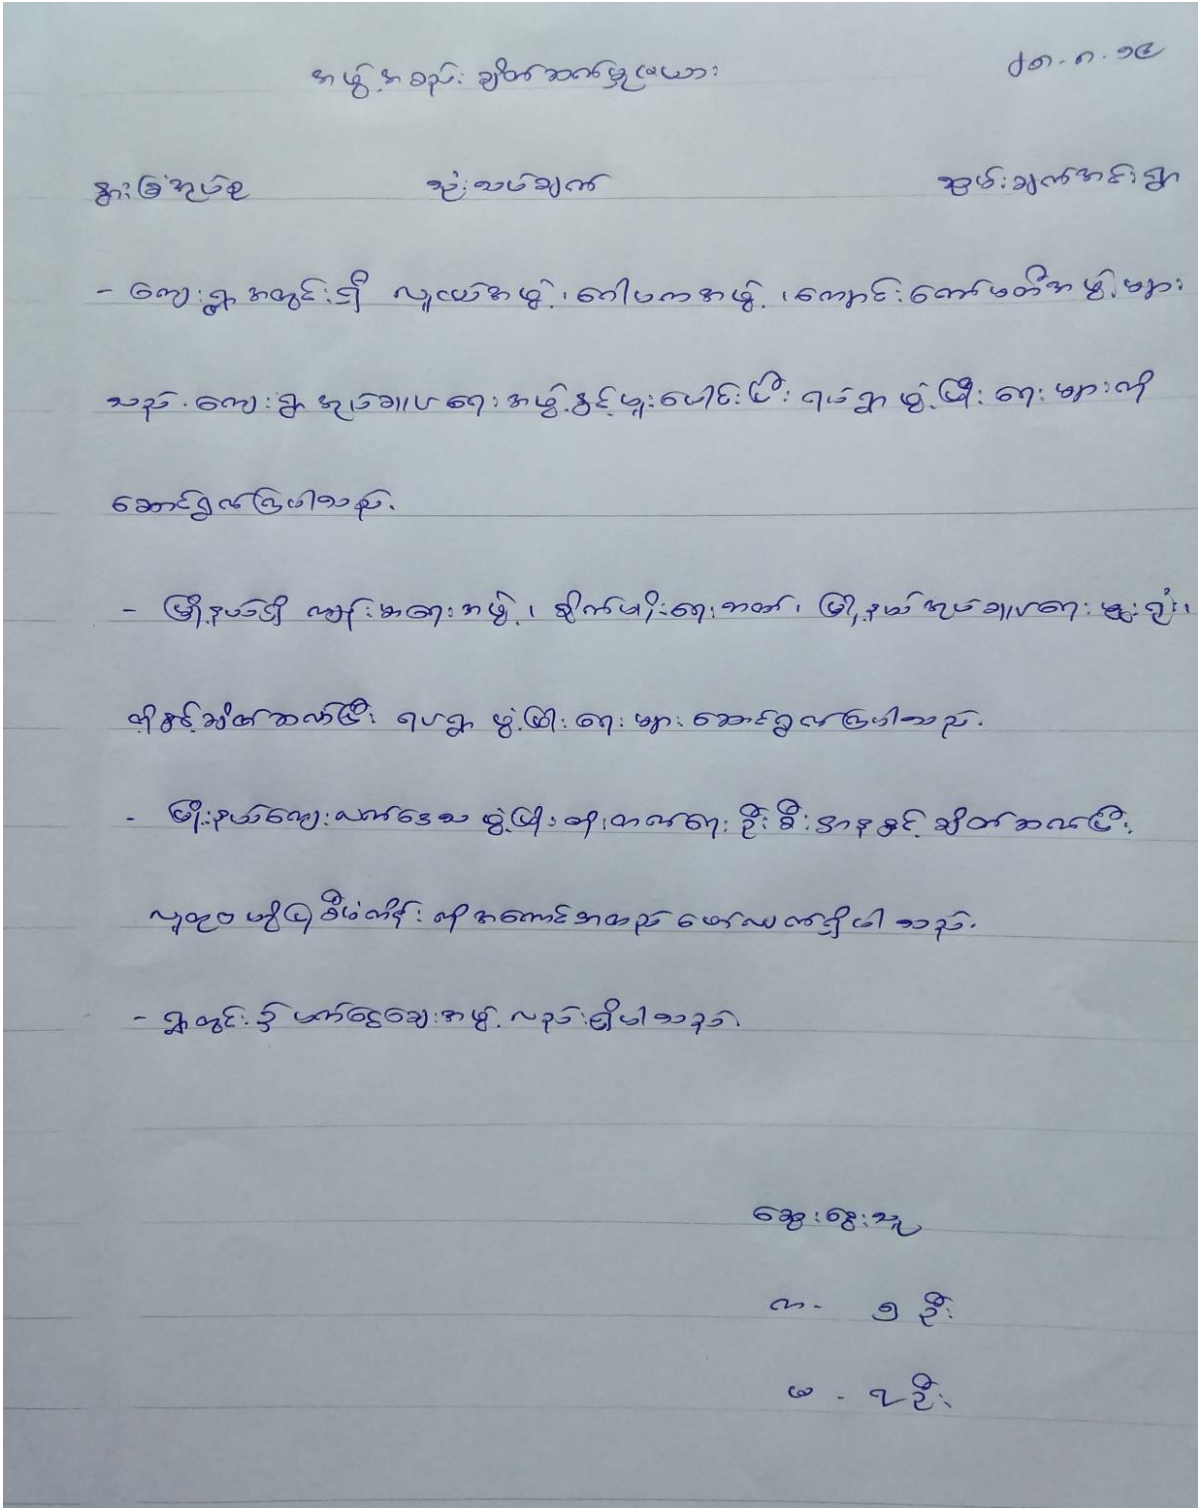 အဖွဲ့အစည်းချိတ်ဆက်မှုဇယား
၂၈.၈.၁၄
နွားခြံအုပ်စု သုံးသပ်ချက် ဆွမ်းချက်အင်းရွာ
- ကျေးရွာအတွင်းရှိ လူငယ်အဖွဲ့၊ ဂေါပကအဖွဲ့၊ ကျောင်းကော်မတီအဖွဲ့များ
သည်. ကျေးရွာအုပ်ချုပ်ရေးအဖွဲ့နှင့်ပူးပေါင်းပြီး ရပ်ရွာဖွံ့ဖြိုးရေးများကို
ဆောင်ရွက်ကြပါသည်.
- မြို့နယ်ရှိ ကျန်းမာရေးအဖွဲ့၊ စိုက်ပျိုးရေးဘဏ်၊ မြို့နယ်အုပ်ချုပ်ရေးမှူးရုံး၊
တို့နှင့်ချိတ်ဆက်ပြီး ရပ်ရွာဖွံ့ဖြိုးရေးများဆောင်ရွက်ကြပါသည်.
- မြို့နယ်ကျေးလက်ဒေသဖွံ့ဖြိုးတိုးတက်ရေးဦးစီးဌာနနှင့်ချိတ်ဆက်ပြီး
လူထုဗဟိုပြုစီမံကိန်းကိုအကောင်အထည်ဖော်လျက်ရှိပါသည်.
- ရွာတွင်း၌ ပတ်ငွေချေးအဖွဲ့လည်းရှိပါသည်.
ဆွေးနွေးသူ
က - ၅ ဦး
မ - ၇ ဦး